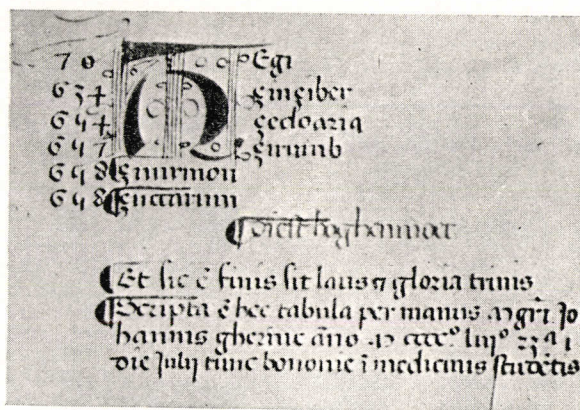 70 Egi
634 zinziber
644 zedoaria
647 zirunb
648 ¶ zuirmon
648 ¶ zuccarum
¶ Dicit Iohannes
¶ Et sic ē finis sit laus ⁊ gloria trinis
¶ Scripta ē hec tabula per manus mgri Jo
hannis gherinc año m cccc° liii°
die Julij tunc bononie ī medicinis studētis